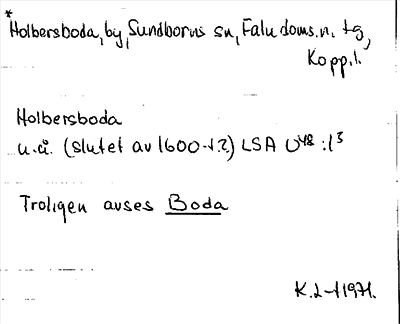 *
Holbersboda, by, Sundborns sn, Falu doms.n. tg,
Kopp.l.
Holbersboda
u.å. (slutet av 1600-t?) LSA U48:13
Troligen avses Boda
K.L-l 1971.